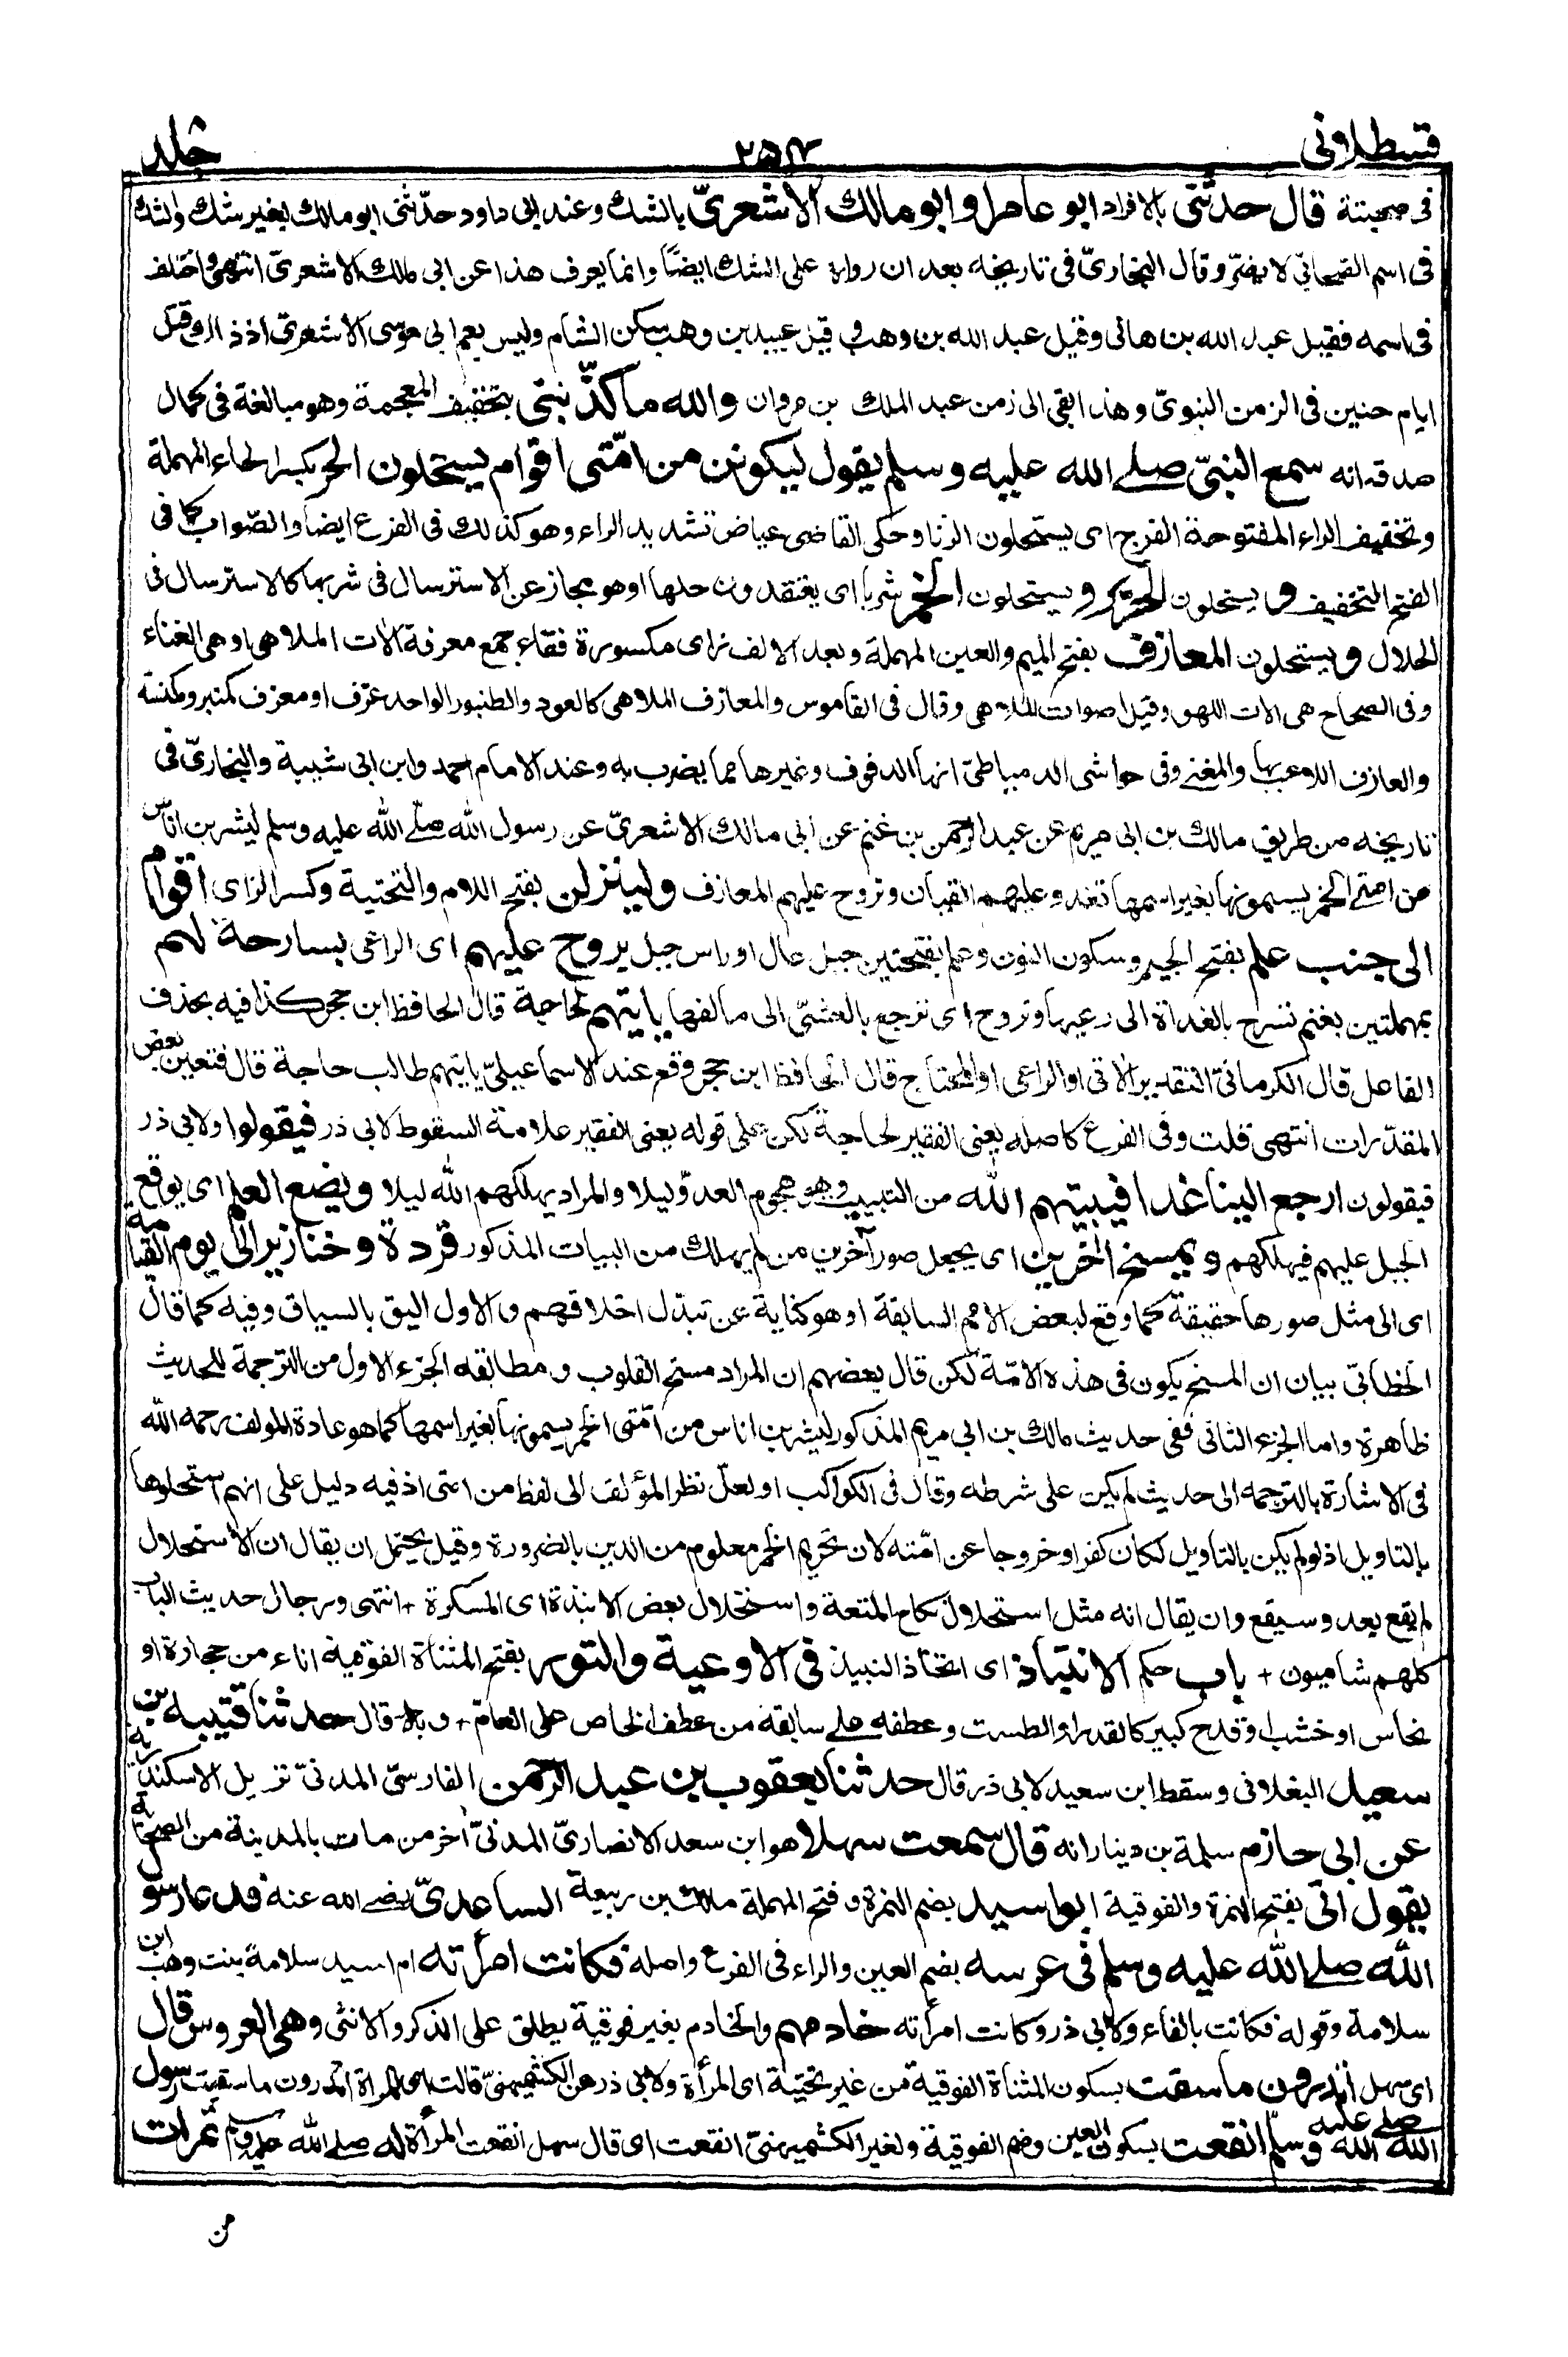 قسطلانی
۲۵۴
جلد
فی صحبته قال حدثنی بالافراد ابو عامر او ابو مالك الاشعریّ بالشك وعند ابی داود حدّثنی ابو مالك بغیر شك والشك
فی اسم الصحابیّ لا یضرّ وقال البخاریّ فی تاریخه بعد ان رواه علی الشك ایضًا وانما یعرف هذا عن ابی مالك الاشعریّ انتهی واختلف
فی اسمه فقیل عبد الله بن هانی وقیل عبد الله بن وهب و قیل عبید بن وهب سکن الشام ولیس بعم ابی موسی الاشعریّ اذ ذاك قتل
ایام حنین فی الزمن النبویّ وهذا بقی الی زمن عبد الملك بن مروان والله ما کذّبنی بتخفیف المعجمة وهو مبالغة فی کمال
صدقه انه سمع النبیّ صلے الله علیه وسلم یقول لیکونن من امّتی اقوام یستحلون الحر بکسر الحاء المهملة
وتخفیف الراء المفتوحة الفرج ای یستحلون الزنا وحکی القاضی عیاض تشدید الراء وهو کذلك فی الفرع ایضا والصّواب کما فی
الفتح التخفیف و یستحلون الحریر و یستحلون الخمر شربا ای یعتقدون حلها او هو مجاز عن الاسترسال فی شربها کالاسترسال فی
الحلال و یستحلون المعازف بفتح المیم والعین المهملة وبعد الالف زای مکسورة ففاء جمع معزفة الات الملاهی او هی الغناء
وفی الصحاح هی الات اللهو وقیل اصوات الملاهی وقال فی القاموس والمعازف الملاهی کالعود والطنبور الواحد عزف او معزف کمنبر ومکنسة
والعازف اللاعب بها والمغنے وفی حواشی الدمیاطیّ انها الدفوف وغیرها مما یضرب به وعند الامام احمد وابن ابی شیبة والبخاریّ فی
تاریخه من طریق مالك بن ابی مریم عن عبد الرحمن بن غنم عن ابی مالك الاشعریّ عن رسول الله صلّے الله علیه وسلم لیشربن اناس
من امتے الخمر یسمونها بغیر اسمها تغدو علیهم القیان وتروح علیهم المعازف ولینزلن بفتح اللام والتحتیة وکسر الزای اقوام
الی جنب علم بفتح الجیم وسکون النون وعلم بفتحتین جبل عال او راس جبل یروح علیهم ای الراعی بسارحة لهم
بمهملتین بغنم تسرح بالغداة الی رعیها وتروح ای ترجع بالعشیّ الی مالفها یاتیهم لحاجة قال الحافظ ابن حجر کذا فیه بحذف
الفاعل قال الکرمانیّ التقدیر الآتی او الراعی او المحتاج قال الحافظ ابن حجر وقع عند الاسماعیلیّ یاتیهم طالب حاجة قال فتعین بعض
المقدّرات انتهی قلت وفی الفرع کاصله یعنی الفقیر لحاجة لکن علی قوله یعنی الفقیر علامة السقوط لابی ذر فیقولوا ولابی ذر
فیقولون ارجع الینا غدا فیبیتهم الله من التبییت وهو هجوم العدوّ لیلا والمراد یهلکهم الله لیلا ویضع العلم ای یوقع
الجبل علیهم فیهلکهم و یمسخ اخرین ای یجعل صور آخرین من لم یهلك من البیات المذکور قردة وخنازیر الی یوم القیامة
ای الی مثل صورها حقیقة کما وقع لبعض الامم السابقة او هو کنایة عن تبدّل اخلاقهم والاول الیق بالسیاق وفیه کما قال
الخطابیّ بیان ان المسخ یکون فی هذه الامّة لکن قال بعضهم ان المراد مسخ القلوب ومطابقه الجزء الاول من الترجمة للحدیث
ظاهرة واما الجزء الثانی ففی حدیث مالك بن ابی مریم المذکور لیشربن اناس من امّتی الخمر یسمونها بغیر اسمها کما هو عادة المؤلف رحمه الله
فی الاشارة بالترجمه الی حدیث لم یکن علی شرطه وقال فی الکواکب او لعلّ نظر المؤلف الی لفظ من امتی اذ فیه دلیل علی انهم استحلوها
بالتاویل اذ لو لم یکن بالتاویل لکان کفرا وخروجا عن امّته لان تحریم الخمر معلوم من الدین بالضرورة وقیل یحتمل ان یقال ان الاستحلال
لم یقع بعد وسیقع وان یقال انه مثل استحلال نکاح المتعة واستحلال بعض الانبذة ای المسکرة + انتهی ورجال حدیث الباب
کلهم شامیون + باب حکم الانتباذ ای اتخاذ النبیذ فی الاوعیة والتور بفتح المثناة الفوقیة اناء من حجارة او
نحاس او خشب او قدح کبیر کالقدر او الطست وعطفه علے سابقه من عطف الخاص علی العامّ + وبه قال حدثنا قتیبه بن
سعید البغلانی وسقط ابن سعید لابی ذر قال حدثنا یعقوب بن عبد الرحمن الفارسیّ المدنیّ نزیل الاسکندریة
عن ابی حازم سلمة بن دینار انه قال سمعت سهلا هو ابن سعد الانصاریّ المدنیّ آخر من مات بالمدینة من الصحابة
یقول اتی بفتح الهمزة والفوقیة ابو اسید بضم الهمزة وفتح المهملة مالك بن ربیعة الساعدیّ رضے الله عنه فدعا رسول
الله صلے الله علیه وسلم فی عرسه بضم العین والراء فی الفرع واصله فکانت امرأته ام اسید سلامة بنت وهب ابن
سلامة وقوله فکانت بالفاء ولابی ذر وکانت امرأته خادمهم والخادم بغیر فوقیة یطلق علی الذکر والانثی وهی العروس قال
ای سهل اتدرون ما سقت بسکون المثناة الفوقیة من غیر تحتیة ای المرأة ولابی ذر عن الکشمیهنیّ قالت ای المرأة اتدرون ما سقیت رسول
الله صلے الله علیه وسلّم انقعت بسکون العین وضم الفوقیة ولغیر الکشمیهنیّ انقعت ای قال سهل انقعت المرأة له صلے الله علیه وسلم تمرات
من